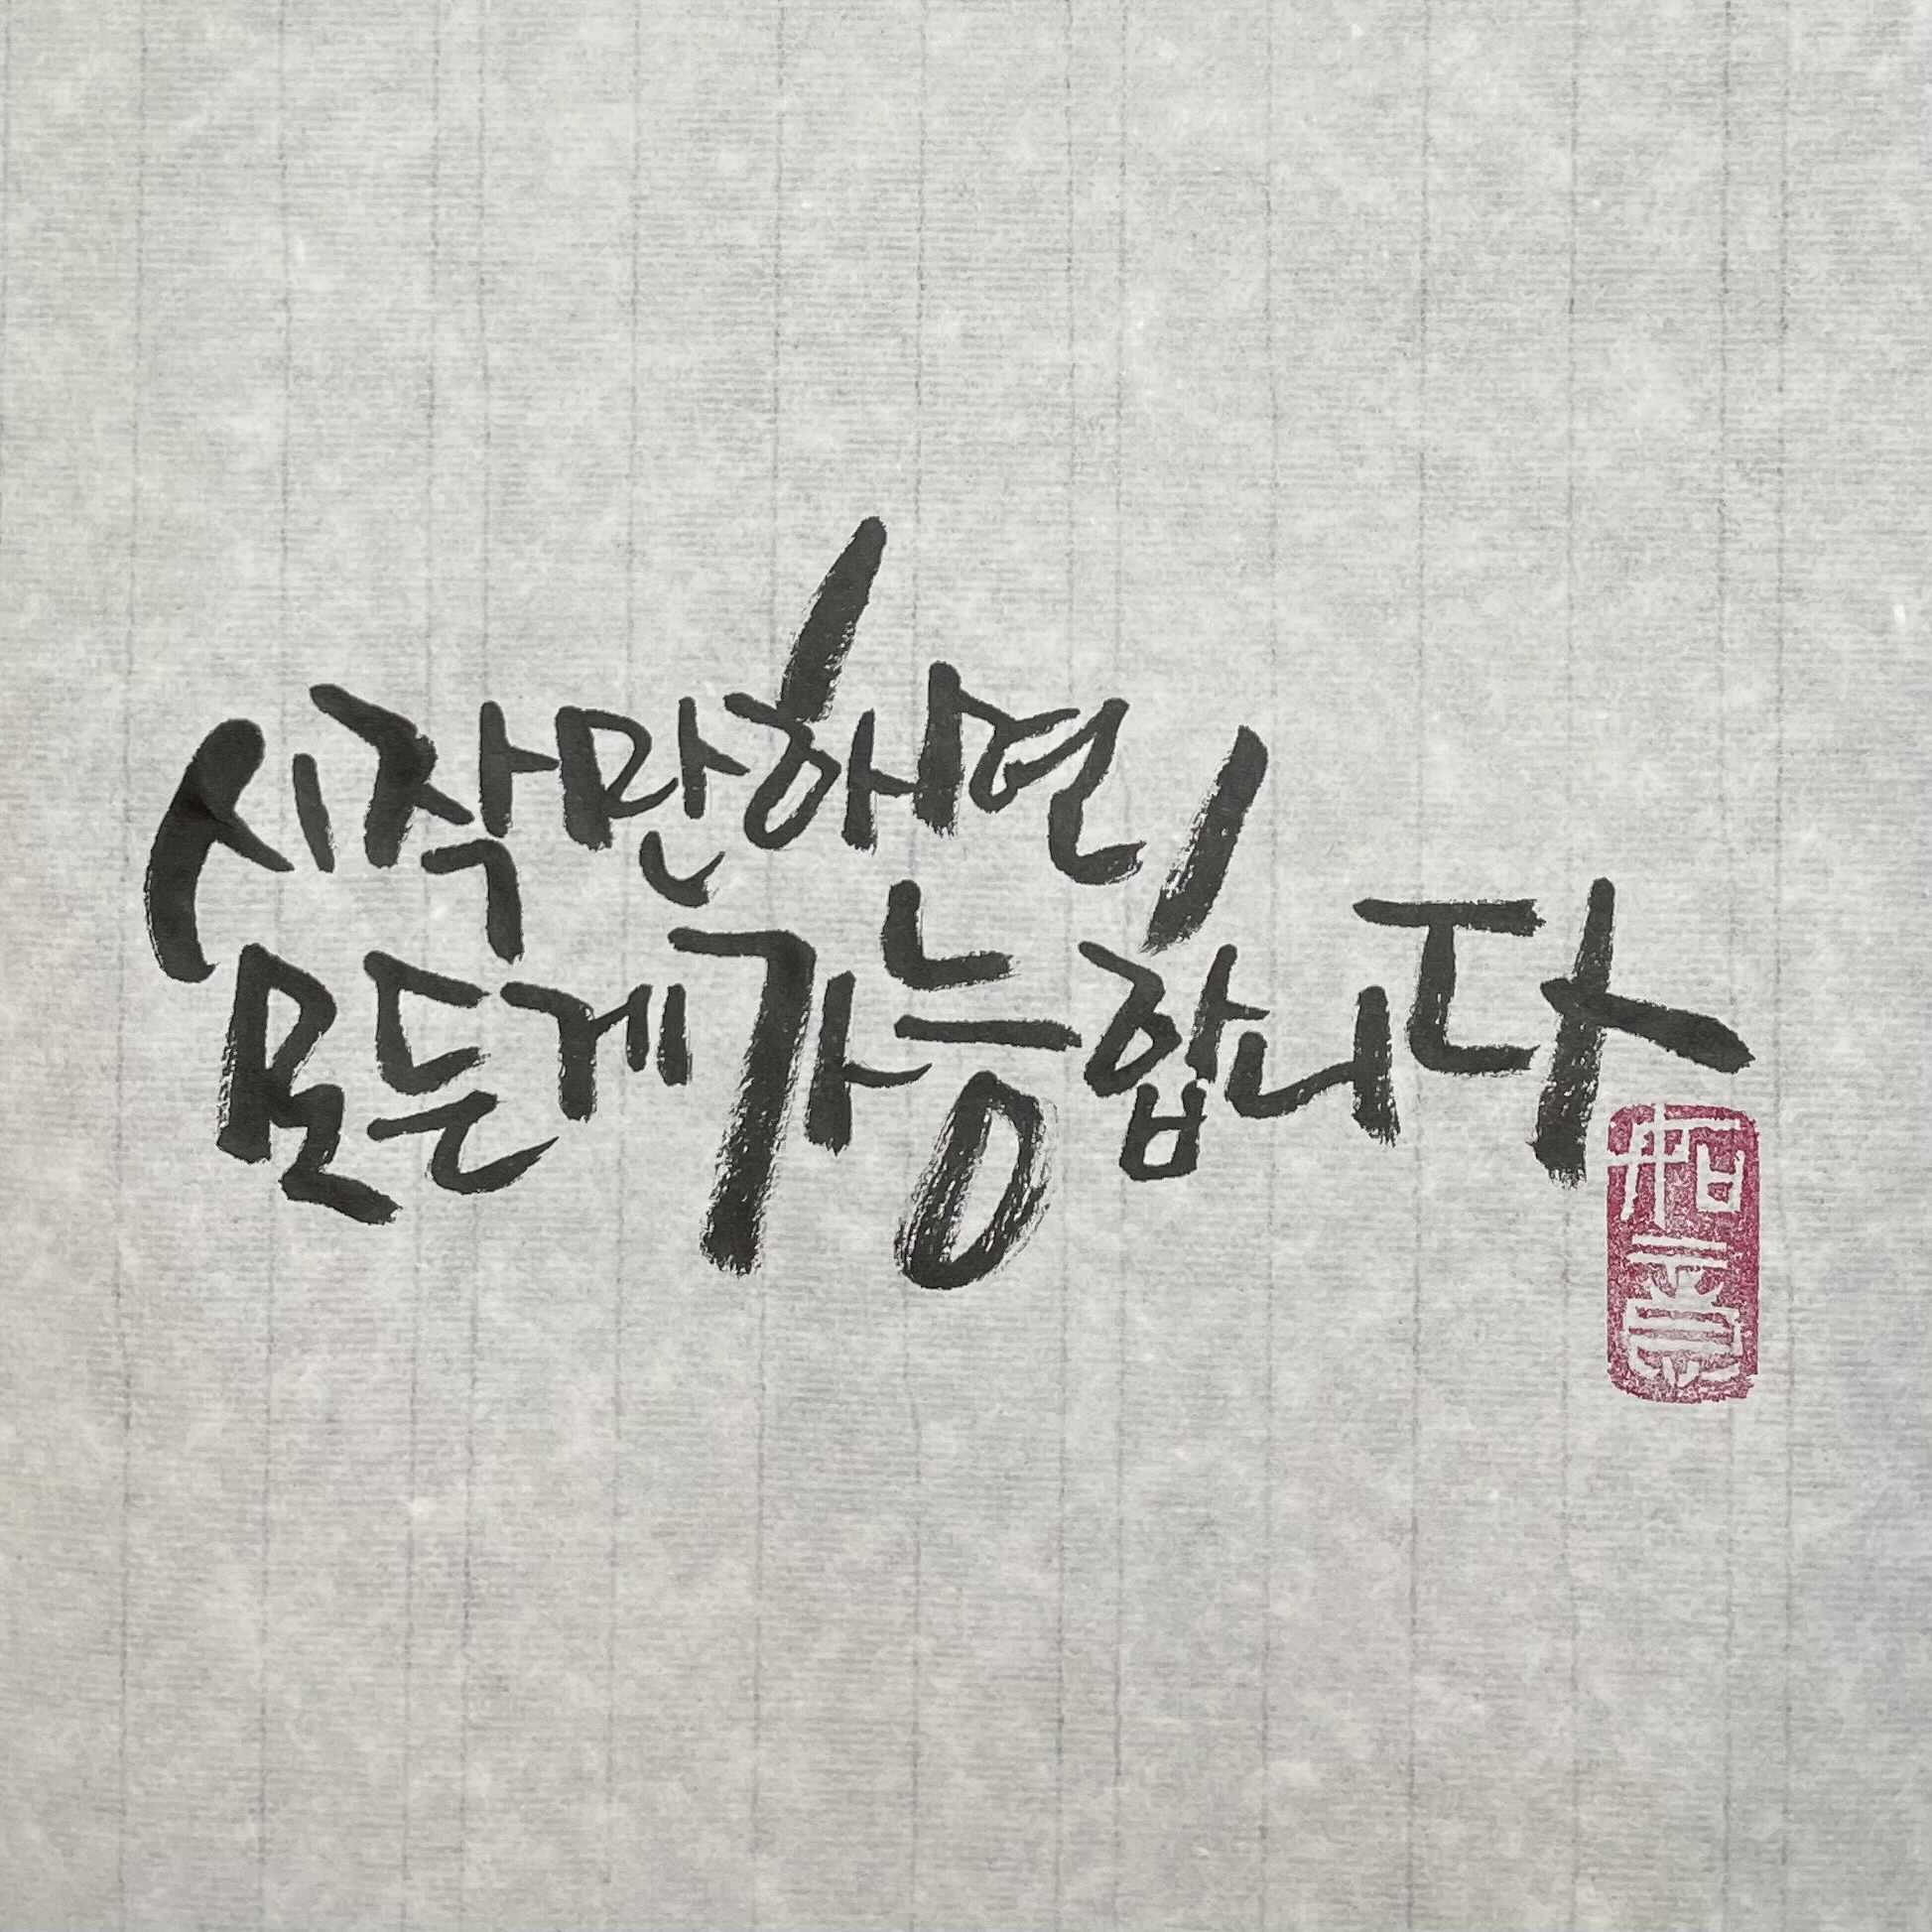 시작만하면
모든게가능합니다